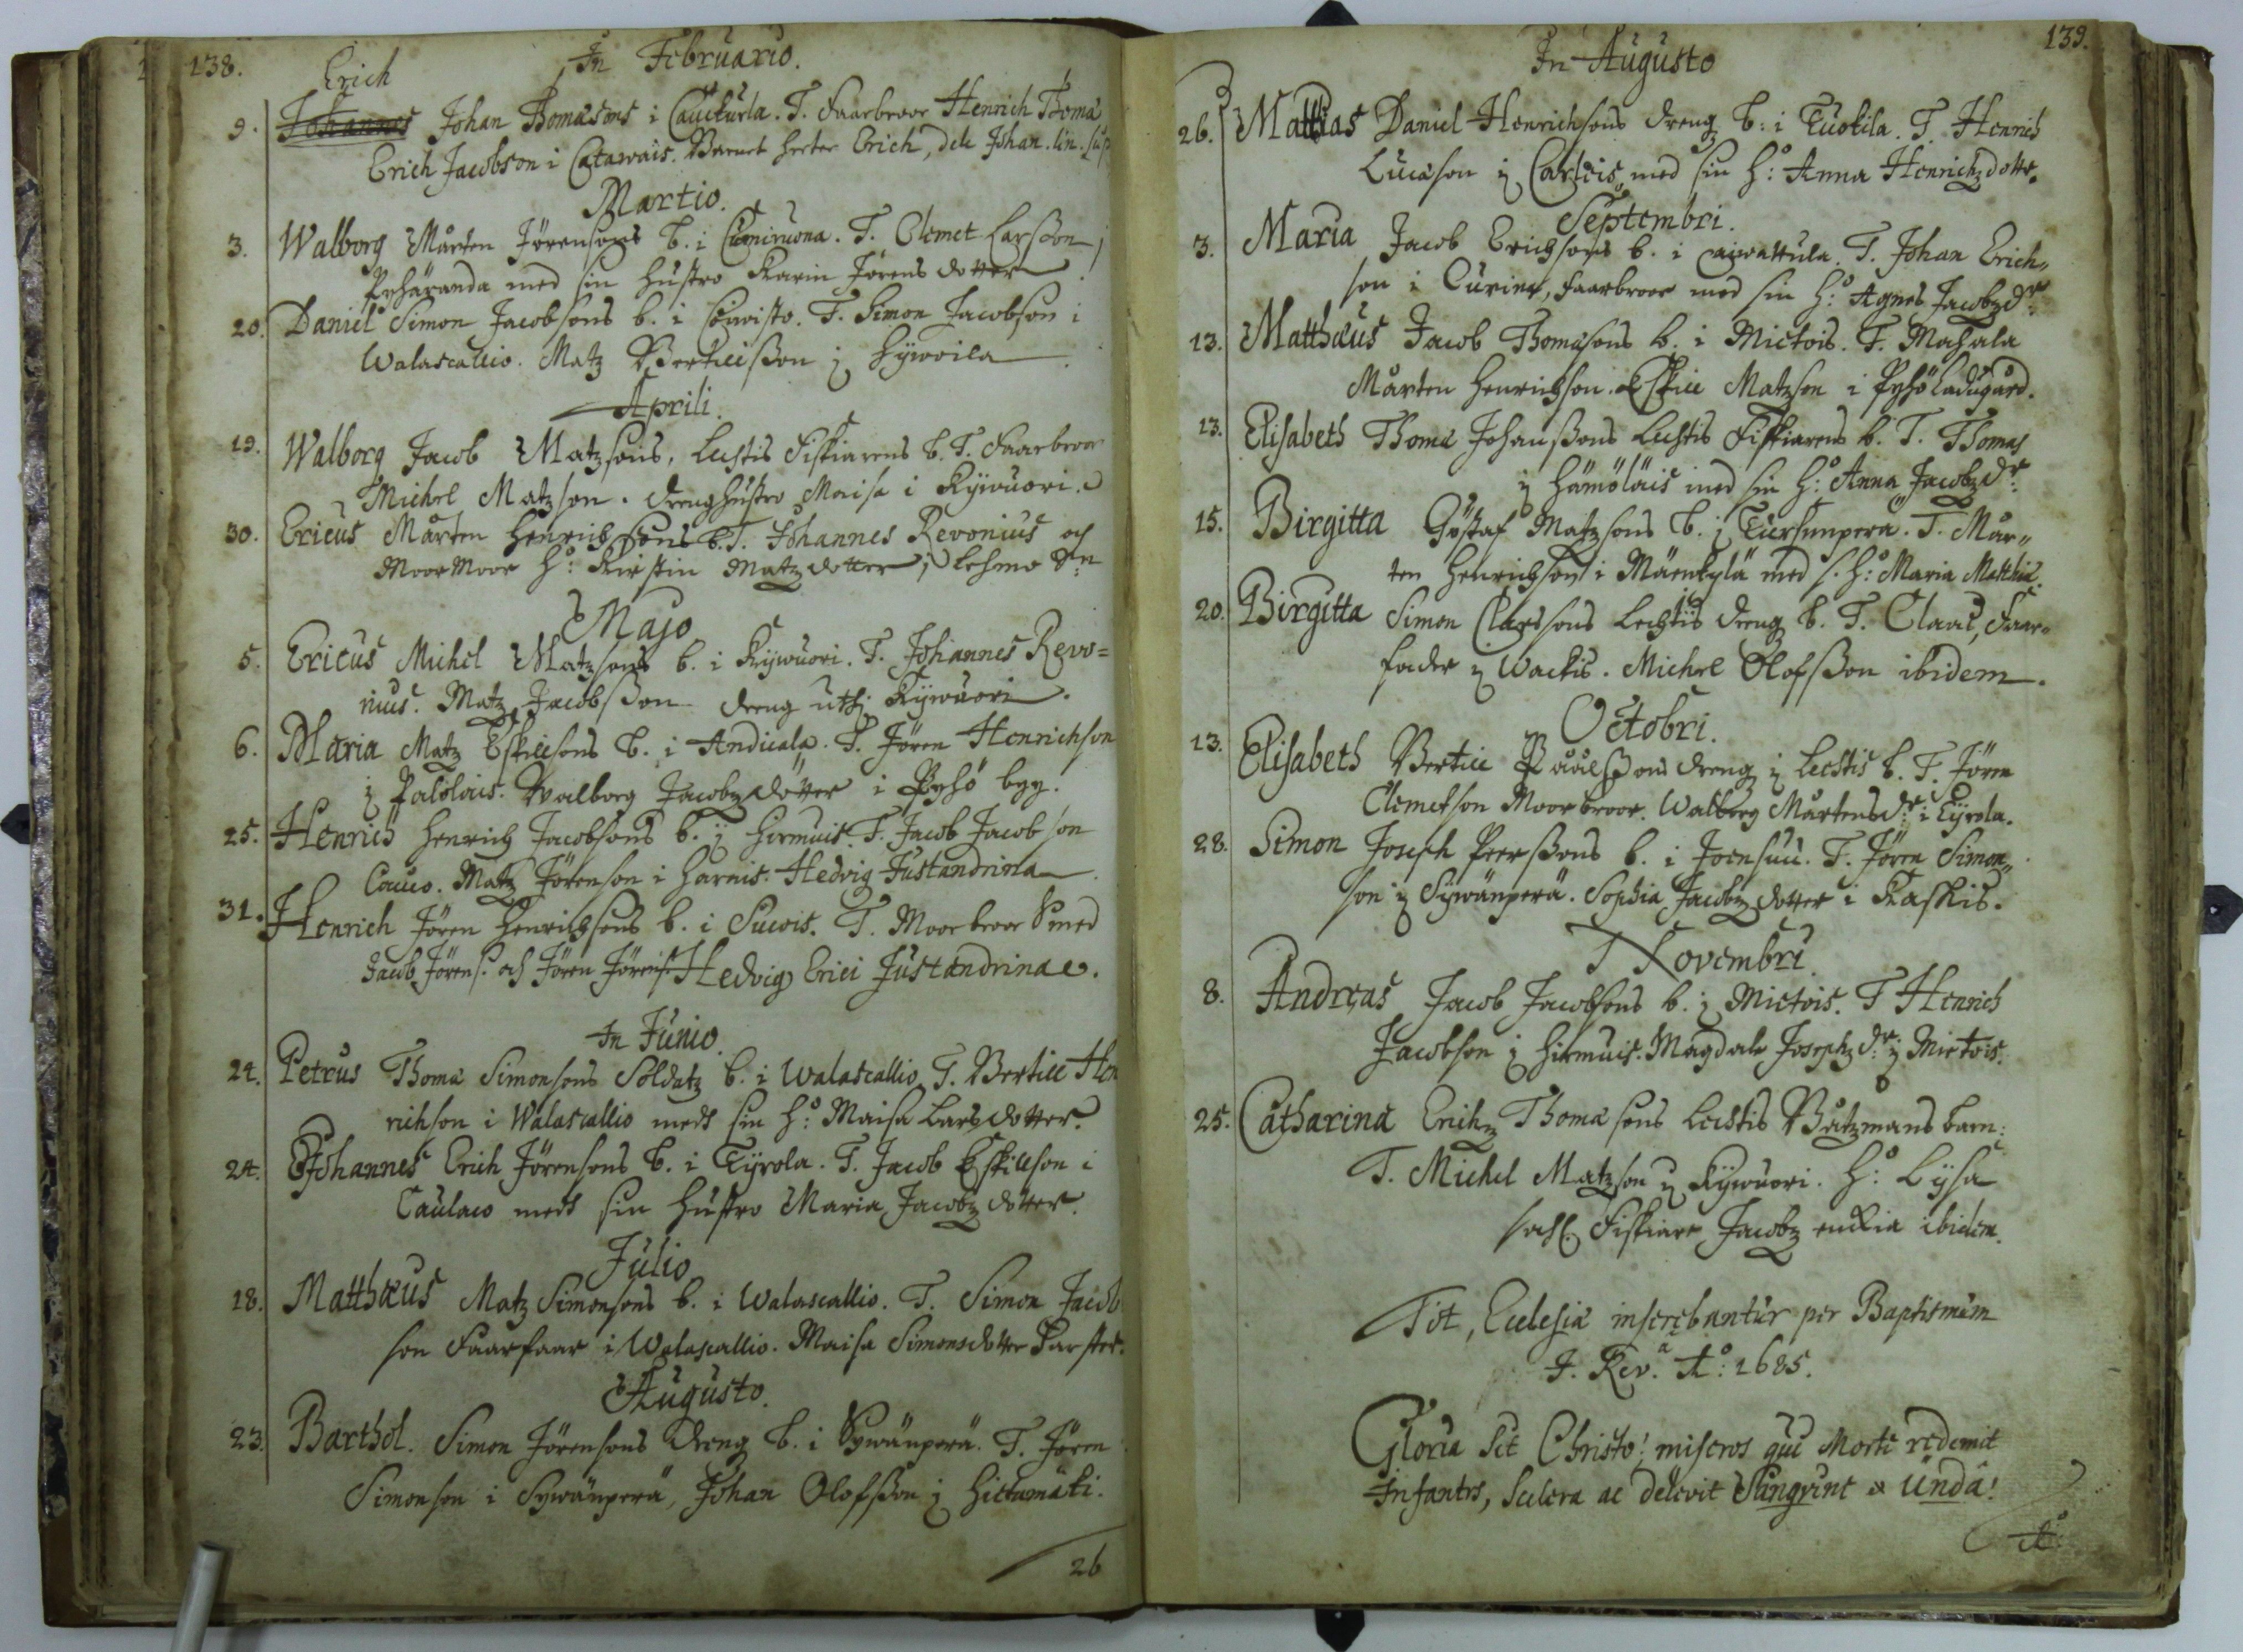 138.
In Februario.
Erich
9. Johannes Johan Thomæsons i Cauckurla. T. Faarbroor Henrich Thomæ
Erich Jacobson i Catawais. Barnet heeter Erich, dele Johan. lin. sup
Martio.
3. Walborg Mårten Jörensons b. i T. Clemet Larsson i
Pyhäranda med sin hustro Karin Jörens dotter
20. Daniel Simon Jacobsons b. i T. Simon Jacobson i
Walascallio. Matz Bertillsson i Hijwoila
Aprili.
19. Walborg Jacob Matzsons, Lechtis Fiskiarens b. T. Faarbroor
Michel Matzson. drenghustro Maisa i Kijwuori.
30. Ericus Mårten Henrichsons b. T. Johannes Revonius och
MoorMoor H: Kirstin Matz dotter i Lehmo
Majo
5. Ericus Michel Matzsons b. i Kijwuori. T. Johannes Revo=
nius. Matz Jacobsson dreng uthj Kijwuori.
6. Maria Matz Eskillsons b. i Andicala. T. Jören Henrichson
i Palolais. Walborg Jacobz dotter i Pyhö byy.
25. Henrich Henrich Jacobsons b. ij Hirmuis. T. Jacob Jacobson
Couco. Matz Jörenson i Harnis. Hedvig Justandrina
31. Henrich Jören Henrichsons b. i Sucois. T. Moorbroor Smed
Jacob Jörens. och Jören Jörens. Hedvig Erici Justandrinæ.
In Junio.
24. Petrus Thomæ Simonsons Soldatz b. i Walascallio T. Bertill Hen
richson i Walascallio medh sin H: Maisa Lars dotter.
24. Johannes Erich Jörensons b. i Tijrola. T. Jacob Eskillson i
Caulaco medh sin hustro Maria Jacobz dotter.
Julio
18. Matthæus Matz Simonsons b. i Walascallio. T. Simon Jacob
son Faarfaar i Walascallio. Maisa Simonsdotter Farster.
Augusto.
23. Barthol. Simon Jörensons dreng b. i Sywänperä. T. Jören
Simonson i Sywänperä, Johan Olofsson i Hietamäki.
26
139.
In Augusto
26. Mattias Daniel Henrichsons dreng b: i Tuokila. T. Henrich
Lucason i Carlois med sin H: Anna Henrichz dotter.
Septembri.
3. Maria Jacob Erichsons b. i T. Johan Erich„
son i Curine, faarbroor med sin H: Agnes Jacobz dr.
13. Matthæus Jacob Thomæsons b. i Mietois. T. Mahala
Mårten Henrichson. Eskill Matzson i Pyhö Ladugård.
13. Elisabeth Thomæ Johanssons Lechtis Fiskiarens b. T. Thomas
i Hämöläis med sin H: Anna Jacobz dr:
15. Birgitta Göstaf Matzsons b. i Tursunperä. T. Mår„
ten Henrichson i Mäenkylä med s. H: Maria Matthiæ.
20. Birgitta Simon Clarssons Lechtis dreng b. T. Claas, Faar„
fader i Wackis. Michel Olofsson ibidem.
Octobri.
13. Elisabeth Bertill Påålssons dreng i Lechtis b. T. Jören
Clemetson Moorbroor. Walborg Mårtens dr: i Tijrola.
28. Simon Joseph Peerssons b. i Joensuu. T. Jören Simon„
son i Sijwänperä. Sophia Jacobz dotter i Kaskis.
Novembri.
8. Andreas Jacob Jacobsons b. i Mietois. T Henrich
Jacobson i Hirmuis. Magdale Josephz dr: i Mietois.
25. Catharina Erichz Thomæsons Lechtis Båtzmans barn:
T. Michel Matzson i Kijwuori. H: Lijsa
sahl. Fiskiare Jacobz enkia ibidem.
Tot, Ecclesiæ inserebantur per Baptismum
J. Rev.a Ao: 1685.
Gloria sit Christo! miseros qui Morte redemit
Infantes, Scelera ac delevit Sangvine & Undâ!
Ao